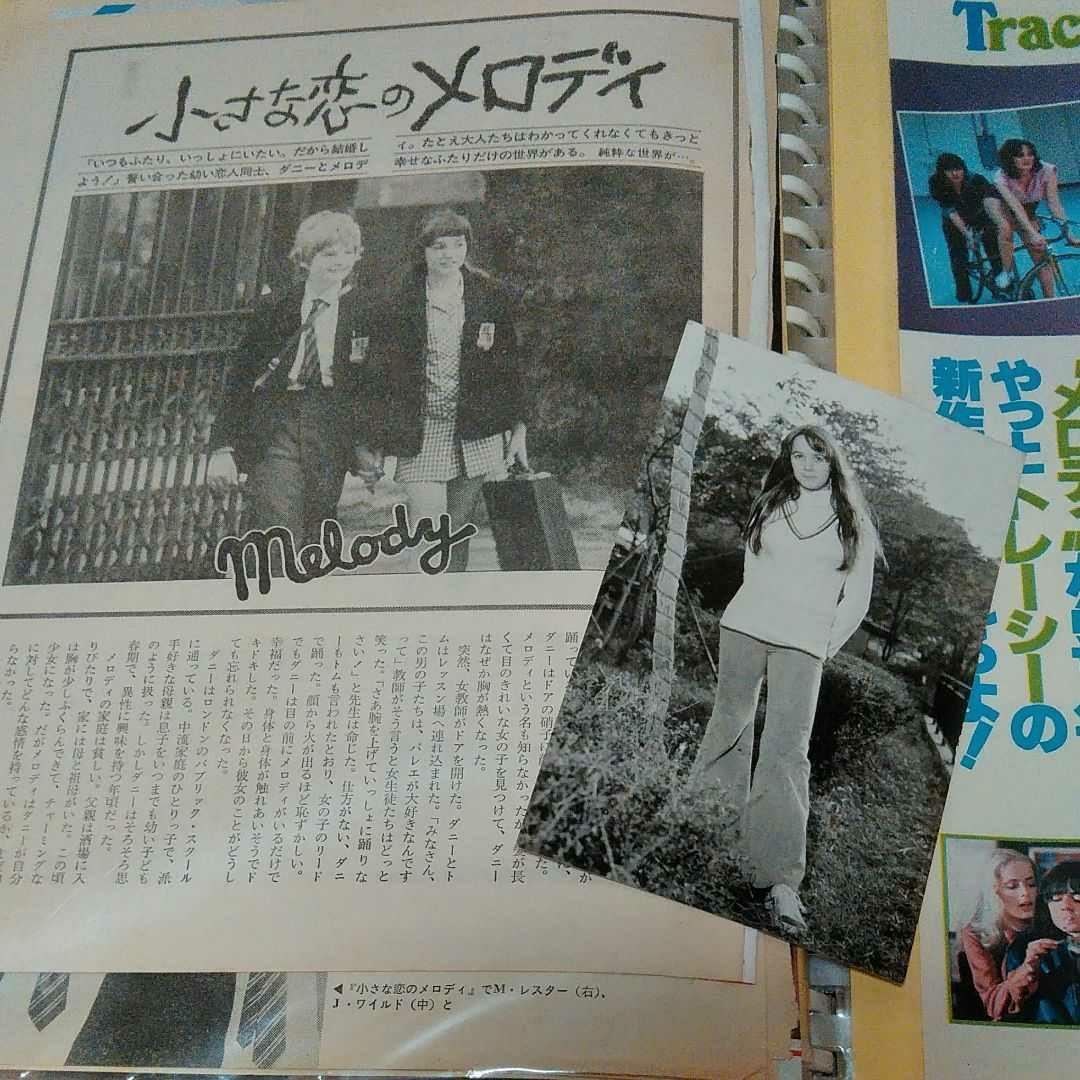 小さな恋のメロディ
「いつもふたり、いっしょにいたい。だから結婚し
よう！」誓い合った幼い恋人同士、ダニーとメロデ
ィ。たとえ大人たちはわかってくれなくてもきっと
幸せなふたりだけの世界がある。純粋な世界が…。
Melody
踊ってい
ダニーはドアの硝子に
メロディという名も知らなかったが
くて目のきれいな女の子を見つけて、ダニー
はなぜか胸が熱くなった。
突然、女教師がドアを開けた。ダニーとト
ムはレッスン場へ連れ込まれた。「みなさん、
この男の子たちは、バレエが大好きなんです
って」教師がそう言うと女生徒たちはどっと
笑った。「さあ腕を上げていっしょに踊りな
さい！」と先生は命じた。仕方がない、ダニ
ーもトムも言われたとおり、女の子のリード
で踊った。顔から火が出るほど恥ずかしい。
でもダニーは目の前にメロディがいるだけで
幸福だった。身体と身体が触れあいそうでド
キドキした。その日から彼女のことがどうし
ても忘れられなくなった。
ダニーはロンドンのパブリック・スクール
に通っている。中流家庭のひとりっ子で、派
手好きな母親は息子をいつまでも幼い子ども
のように扱った。しかしダニーはそろそろ思
春期で、異性に興味を持つ年頃だった。
メロディの家庭は貧しい。父親は酒場に入
りびたりで、家には母と祖母がいた。この頃
は胸が少しふくらんできて、チャーミングな
少女になった。だがメロディはダニーが自分
に対してどんな感情を持っているか、
らなかった。
◀『小さな恋のメロディ』でM・レスター（右）、
J・ワイルド（中）と
Trac
メロディ
やっ
トレーシーの
新作
るよ！